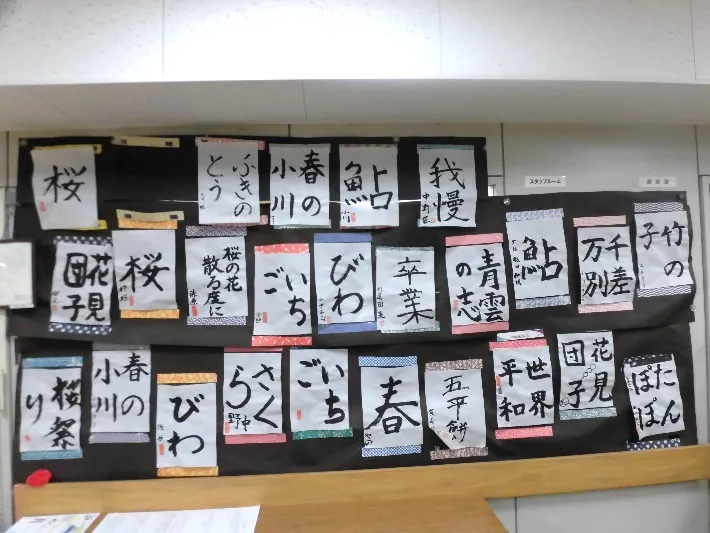 桜
ふきの
とう
春の
小川
鮎
我慢
スタッフルーム
花見
団子
桜
桜の花
散る度に
いち
ご
びわ
卒業
青雲
の志
鮎
千差
万別
竹の
子
桜祭
り
春の
小川
びわ
さく
ら
いち
ご
春
五平
餅
世界
平和
花見
団子
たん
ぽぽ